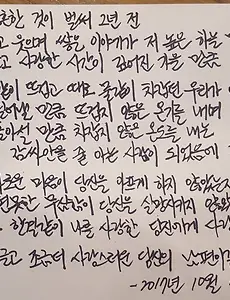 한 것이 벌써 2년 전
고 웃으며 쌓은 이야기가 저 높은 하늘
고 사랑한 시간이 깊어진 가을 만큼
이 뜨겁고 때로 차갑던 우리가
만큼 뜨겁지 않은 온기를 내며
만큼 차갑지 않은 온도를 내는
감싸안을 줄 아는 사람이 되었음에
마음이 당신을 아프게 하지 않았는지
당신을 실망시키지 않았
한결같이 나를 사랑한 당신에게
조금 더 사랑스러운 당신의 남편이
- 2017년 10월